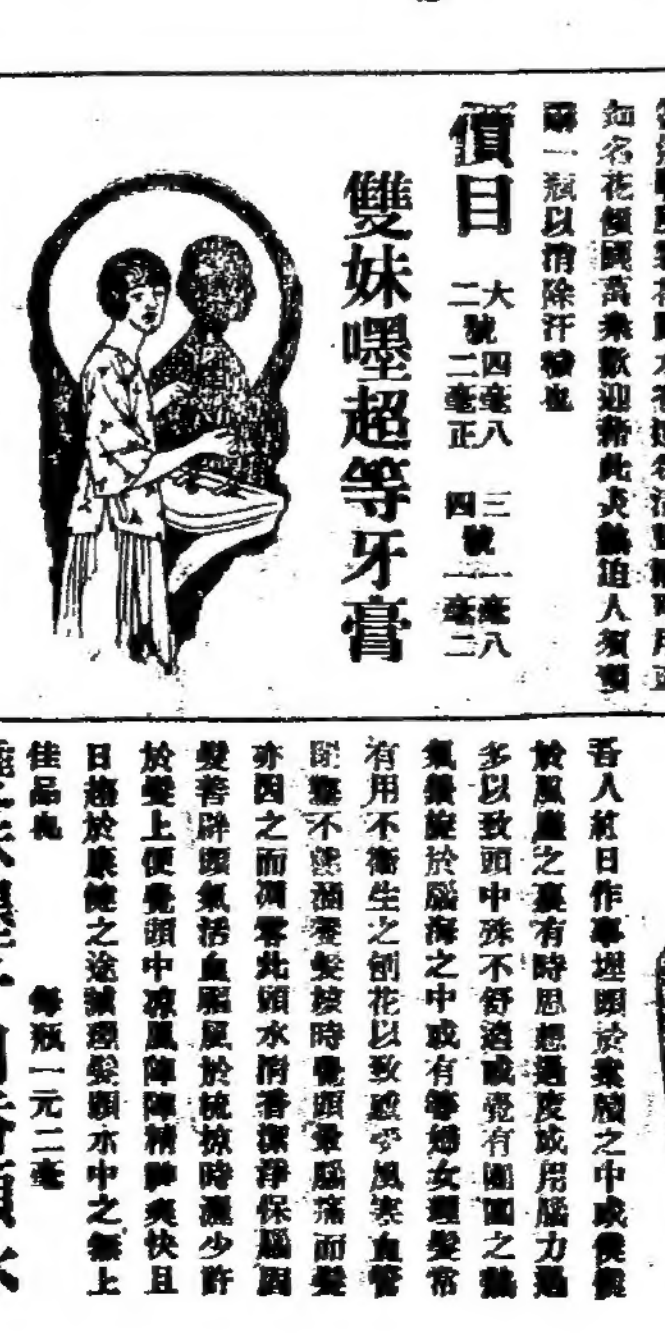 如名花傾國萬衆歡迎際此炎熱迫人須預
購一瓶以消除汗穢也
價目
大號四毫八
二號二毫正
三號一毫八
四號一毫二
雙妹嚜超等牙膏
吾人紅日作事埋頭於案牘之中或僕僕
於風塵之裏有時思想過度或用腦力過
多以致頭中殊不舒適或覺有團團之熱
氣盤旋於腦海之中或有等婦女理髮常
有用不衛生之刨花以致感受風寒血管
閉塞不能涵養髮按時覺頭暈腦痛而髮
亦因之而凋零此頭水清香潔淨保腦固
髮善辟頭氣活血驅風於梳掠時灑少許
於髮上便覺頭中凉風陣陣精神爽快且
日趨於康健之途誠理髮頭水中之無上
佳品也
每瓶一元二毫